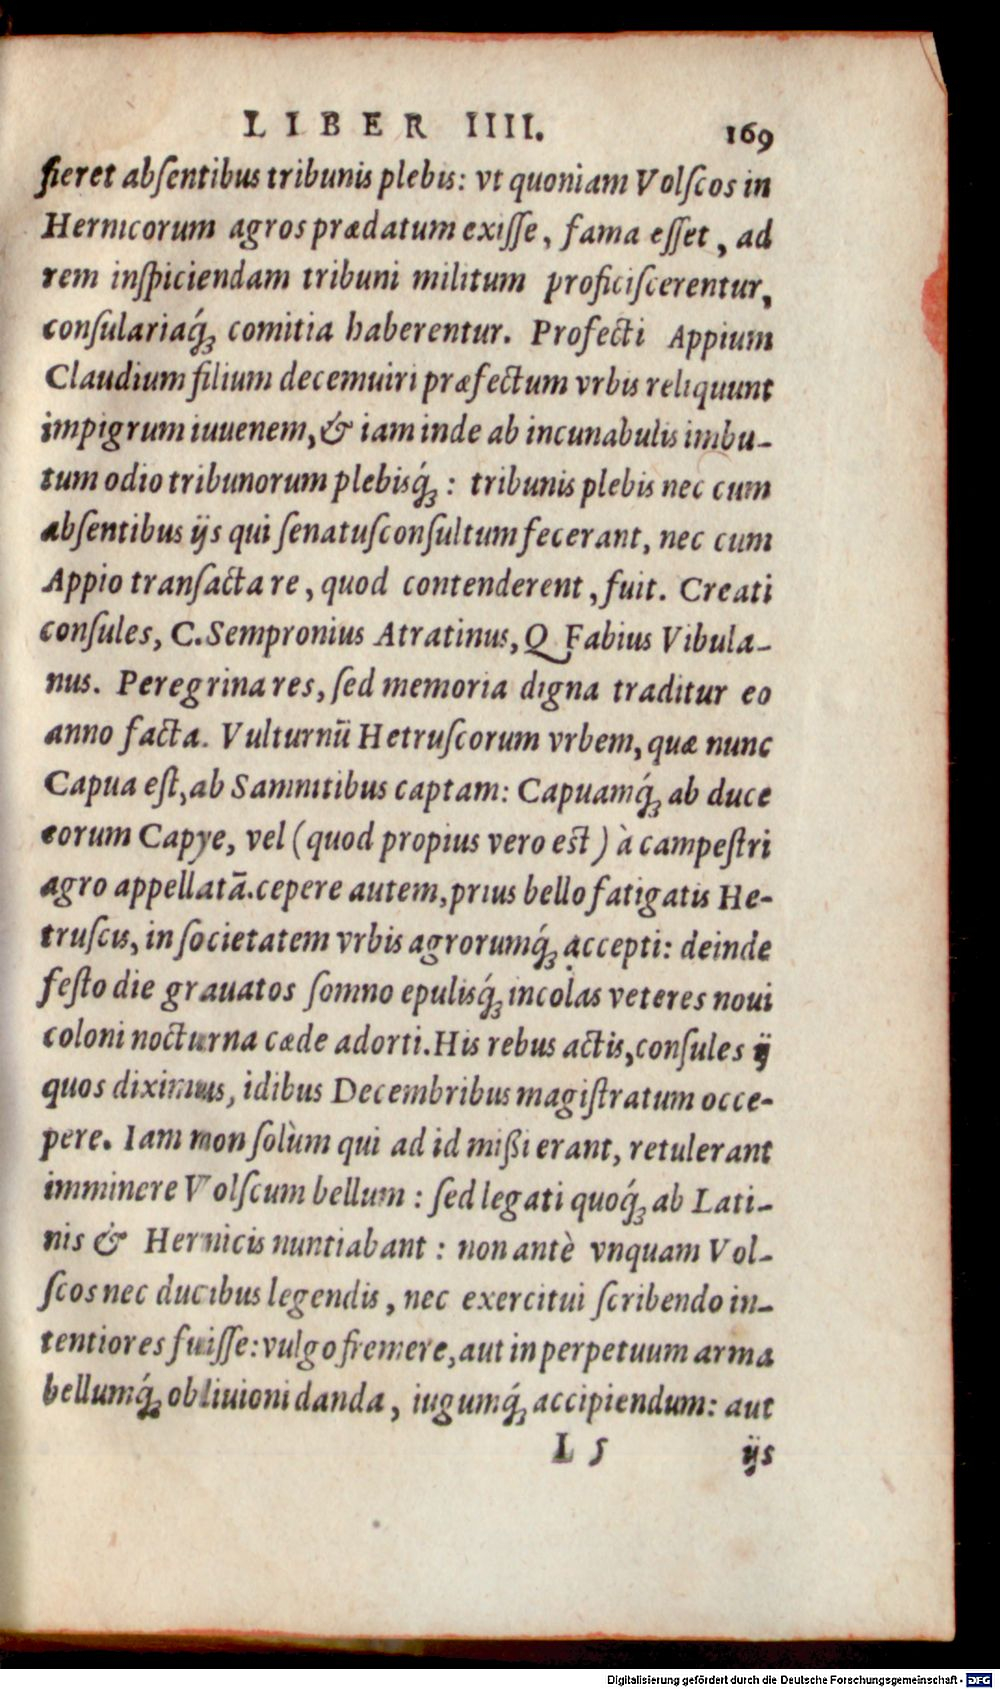 LIBER IIII. 169
fieret absentibus tribunis plebis: vt quoniam Volscos in
Hernicorum agros prædatum exisse, fama esset, ad
rem inspiciendam tribuni militum proficiscerentur,
consulariaq́ꝫ comitia haberentur. Profecti Appium
Claudium filium decemuiri præfectum vrbis reliquunt
impigrum iuuenem, & iam inde ab incunabulis imbu-
tum odio tribunorum plebisq́ꝫ: tribunis plebis nec cum
absentibus ijs qui senatusconsultum fecerant, nec cum
Appio transacta re, quod contenderent, fuit. Creati
consules, C. Sempronius Atratinus, Q. Fabius Vibula-
nus. Peregrina res, sed memoria digna traditur eo
anno facta. Vulturnū Hetruscorum vrbem, quæ nunc
Capua est, ab Samnitibus captam: Capuamq́ꝫ ab duce
eorum Capye, vel (quod propius vero est) à campestri
agro appellatā. cepere autem, prius bello fatigatis He-
truscis, in societatem vrbis agrorumq́ꝫ accepti: deinde
festo die grauatos somno epulisq́ꝫ incolas veteres noui
coloni nocturna cæde adorti. His rebus actis, consules ij
quos diximus, idibus Decembribus magistratum occe-
pere. Iam non solùm qui ad id missi erant, retulerant
imminere Volscum bellum: sed legati quoq́ꝫ ab Lati-
nis & Hernicis nuntiabant: non antè vnquam Vol-
scos nec ducibus legendis, nec exercitui scribendo in-
tentiores fuisse: vulgo fremere, aut in perpetuum arma
bellumq́ꝫ obliuioni danda, iugumq́ꝫ accipiendum: aut
L 5 ijs
Digitalisierung gefördert durch die Deutsche Forschungsgemeinschaft - DFG